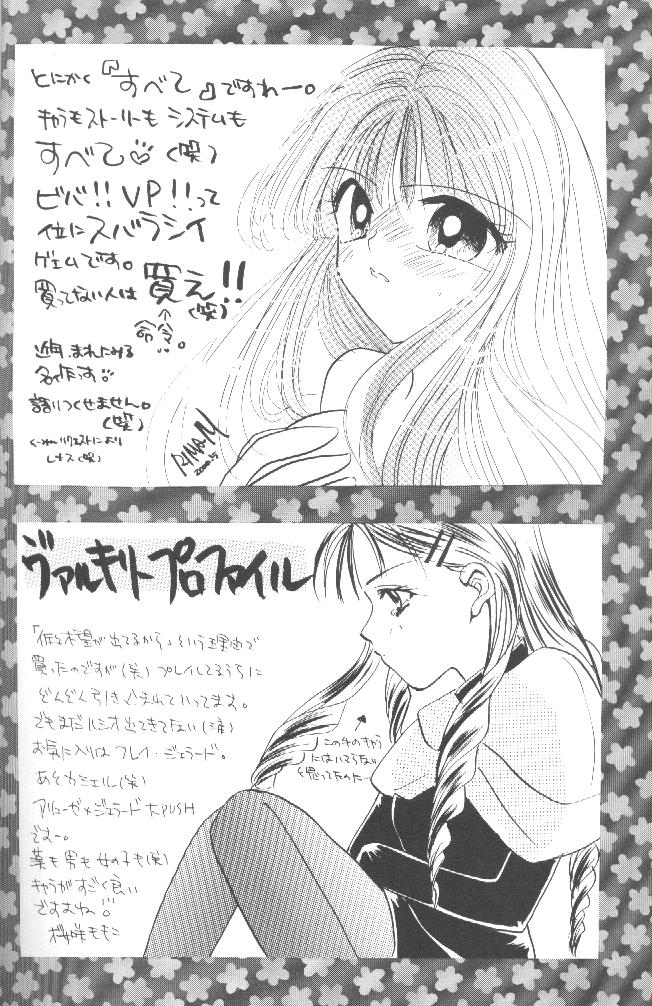 とにかく『すべて』ですわー。
キャラもストーリーも システムも
すべて♡(笑)
ビバ!! VP!!って
位にスバラシイ
ゲェムです。
買ってない人は 買え!!(笑)
↑
命令。
近年、まれにみる
名作っす
語りつくせません。
(笑)
レナス(笑)
RINA・M
2000.5
ヴァルキリープロファイル
「佐々木望が出てるから」という理由で
買ったのですが(笑) プレイしてるうちに
どんどん引き込まれていってます。
でもまだルシオ出てきてない(涙)
お気に入りはフレイ・ジェラード。
あとカシェル(笑)
アリューゼ×ジェラード大PUSH
ですー。
男も女の子も(笑)
キャラがすごく良い
ですよね
桜咲ももこ
この手のキャラ
にはいてうない
と思ってたの…